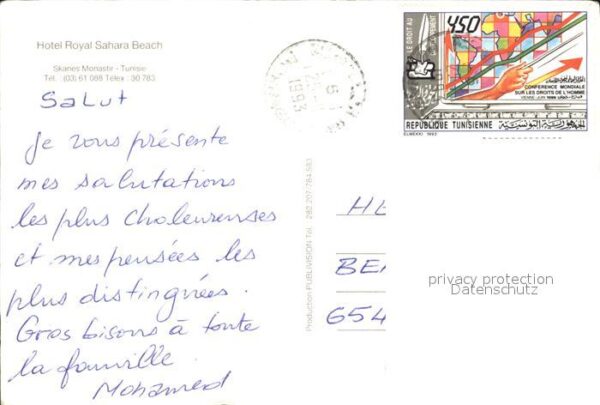 Hotel Royal Sahara Beach
Skanes Monastir - Tunisie
Tél. (03) 61 088 Télex : 30 783
Salut
Je vous présente
mes salutations
les plus chaleureuses
et mes pensées les
plus distinguées.
Gros bisous à toute
la famille.
Mohamed
Production PUBLIVISION Tél.
1993
LE DROIT AU
450
CONFERENCE MONDIALE
SUR LES DROITS DE L'HOMME
REPUBLIQUE TUNISIENNE الجمهورية التونسية
1993
HL
BE
654
privacy protection
Datenschutz